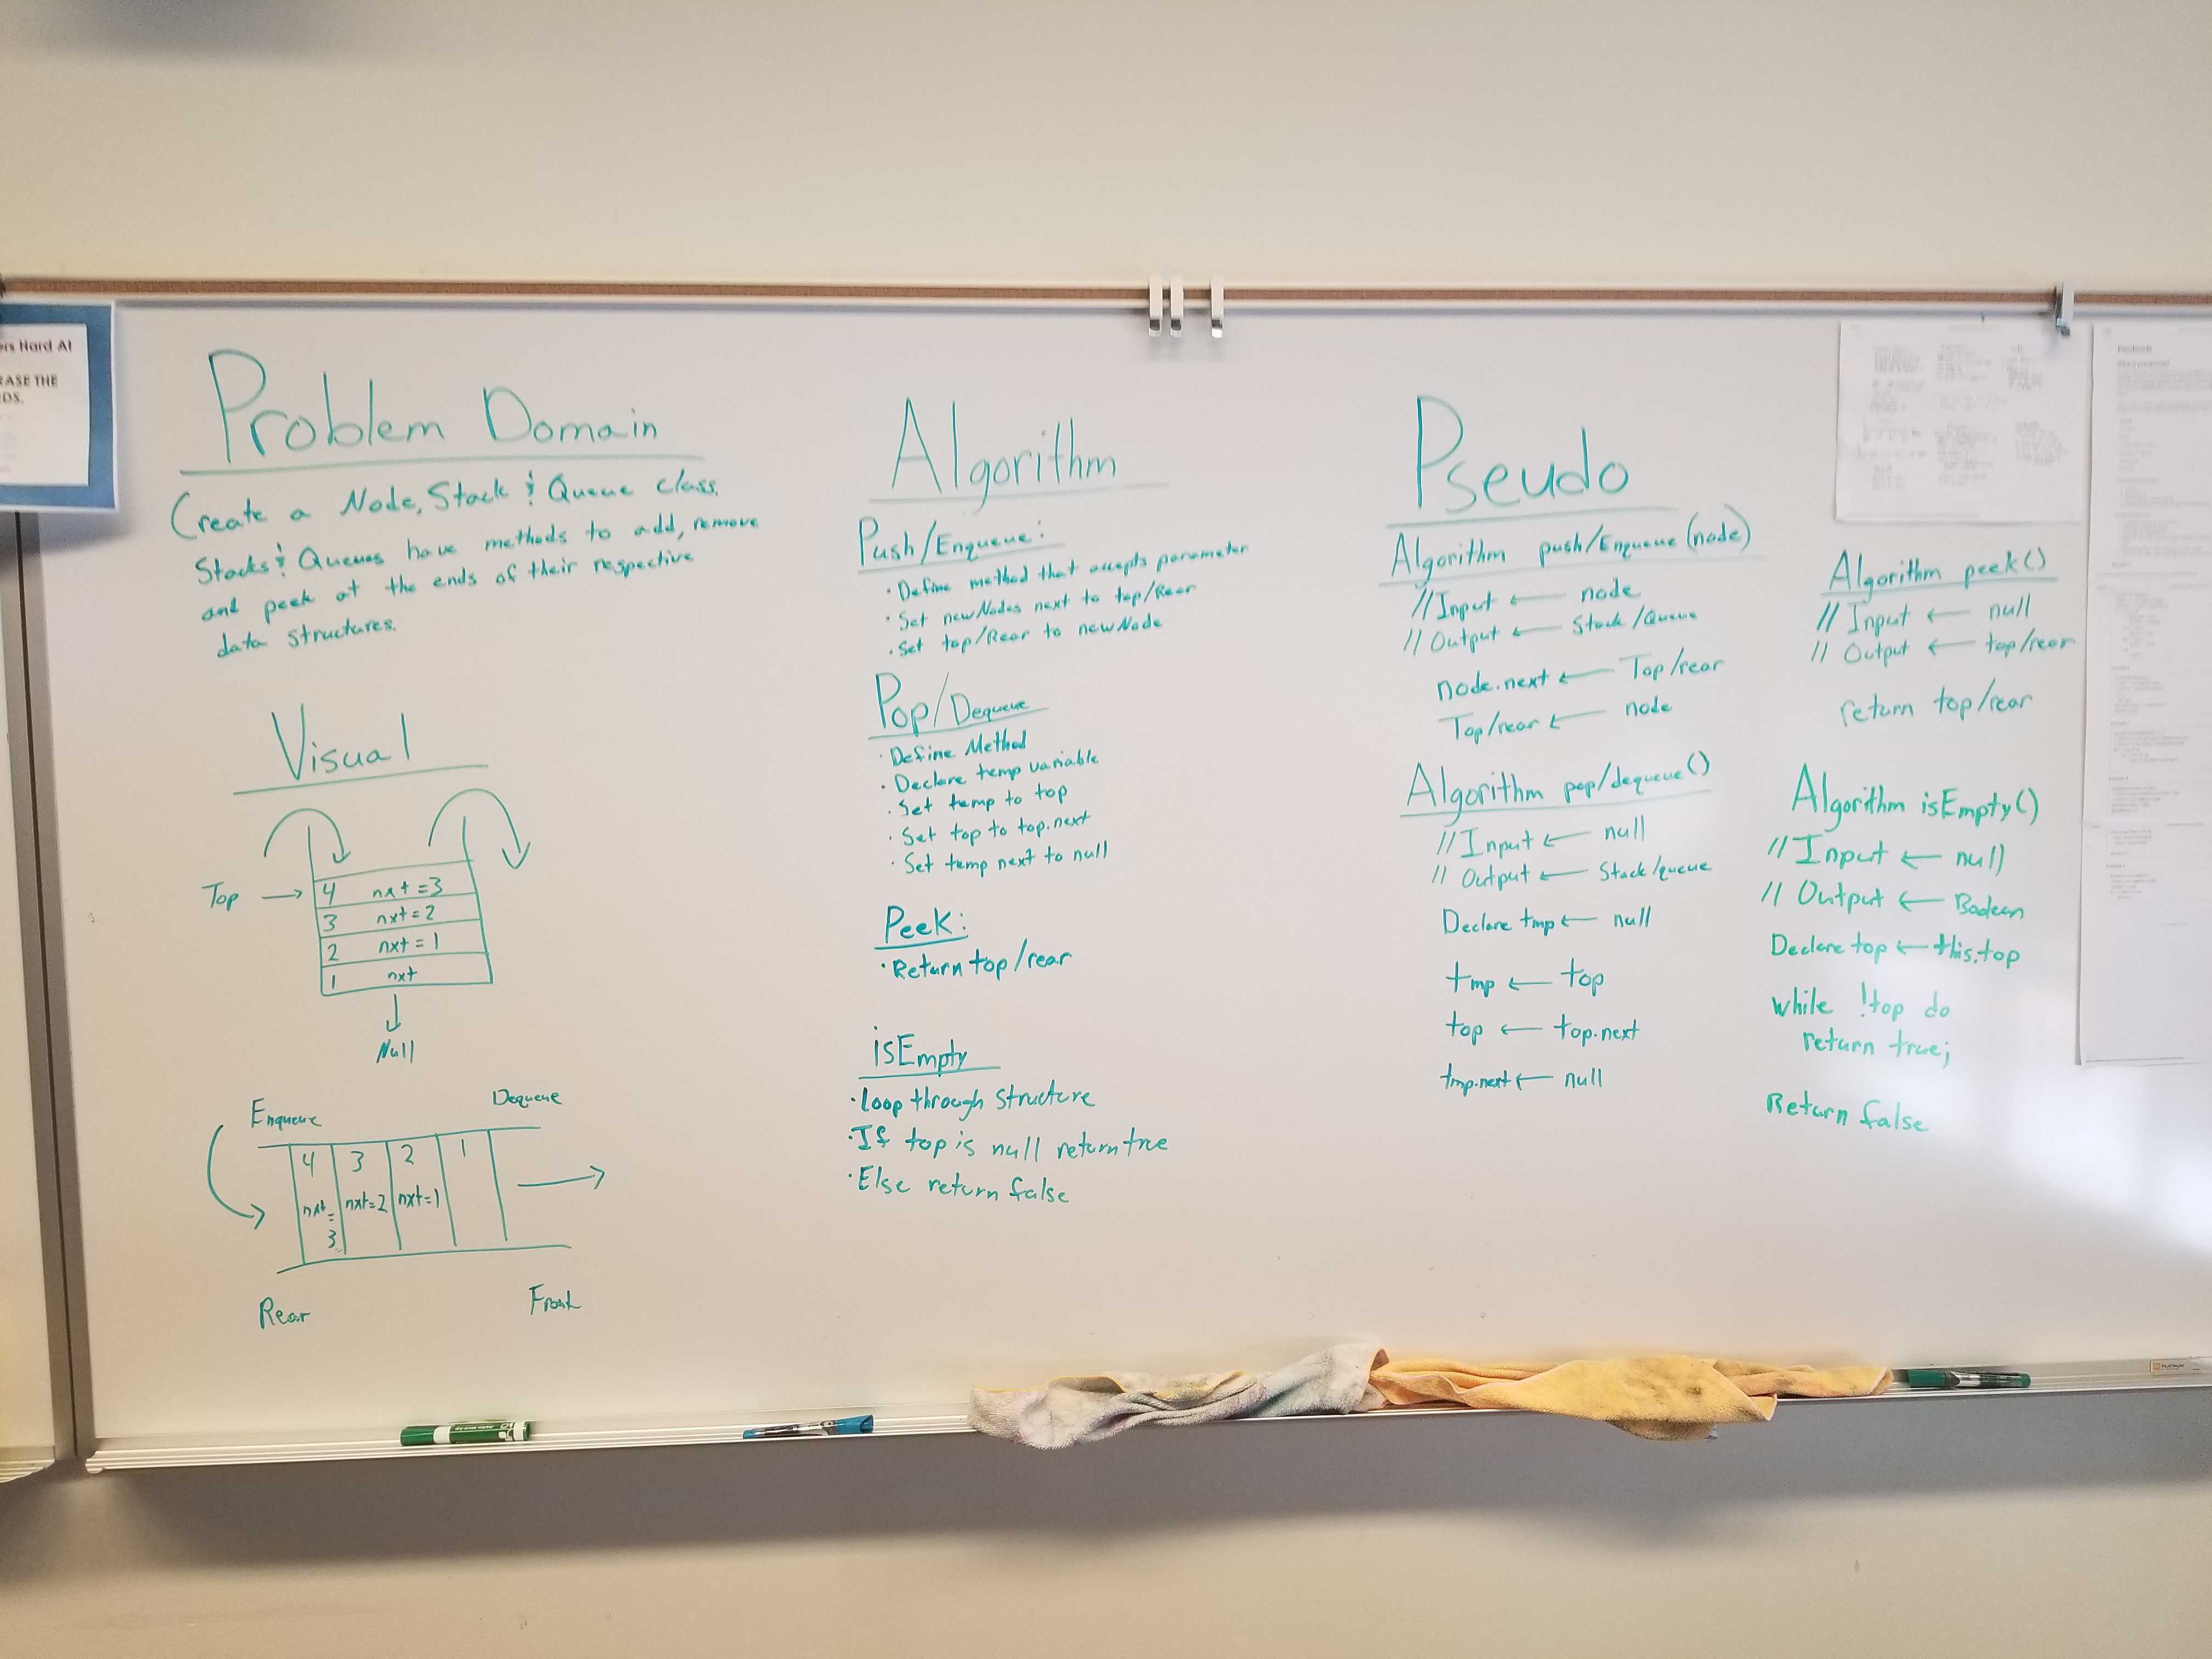 ers Hard At
RASE THE
DS.
Problem Domain
Create a Node, Stack & Queue class.
Stacks & Queues have methods to add, remove
and peek at the ends of their respective
data structures.
Visual
Top
4 nxt = 3
3 nxt = 2
2 nxt = 1
1 nxt
Null
Enqueue Dequeue
4 3 2 1
nxt = 3 nxt = 2 nxt = 1
Rear Front
Algorithm
Push/Enqueue:
· Define method that accepts parameter
· Set newNodes next to top/Rear
· Set top/Rear to newNode
Pop/Dequeue
· Define Method
· Declare temp variable
· Set temp to top
· Set top to top.next
· Set temp next to null
Peek:
· Return top/rear
isEmpty
· Loop through structure
· If top is null return true
· Else return false
Pseudo
Algorithm push/Enqueue (node)
// Input ← node
// Output ← Stack/Queue
node.next ← Top/rear
Top/rear ← node
Algorithm pop/dequeue()
// Input ← null
// Output ← Stack/queue
Declare tmp ← null
tmp ← top
top ← top.next
tmp.next ← null
Algorithm peek()
// Input ← null
// Output ← top/rear
return top/rear
Algorithm isEmpty()
// Input ← null
// Output ← Boolean
Declare top ← this.top
while !top do
return true;
Return false